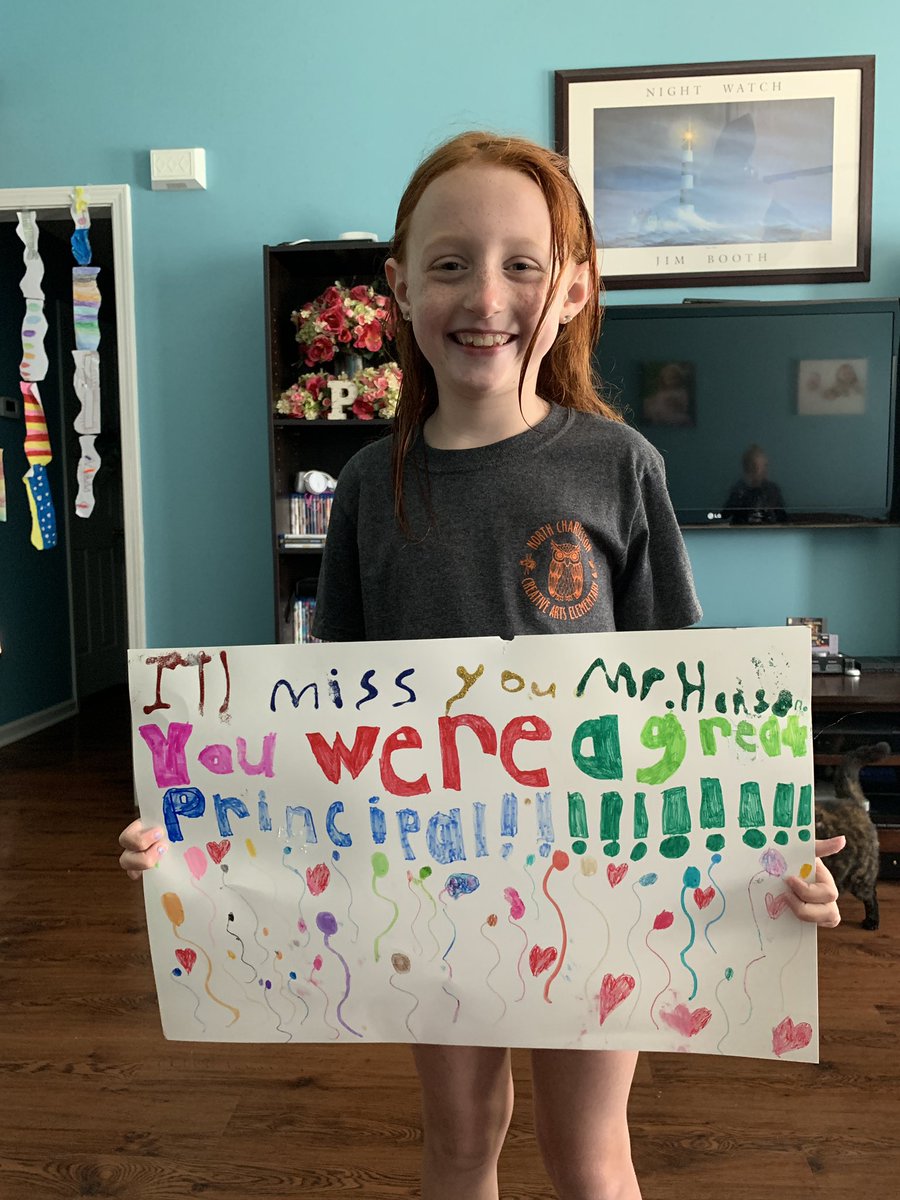 NIGHT WATCH
JIM BOOTH
P
LG
NORTH
CREATIVE ARTS ELEMENTARY
I'll miss you Mr. Hanson.
You were a great
Principal!!!!!!!!!!!